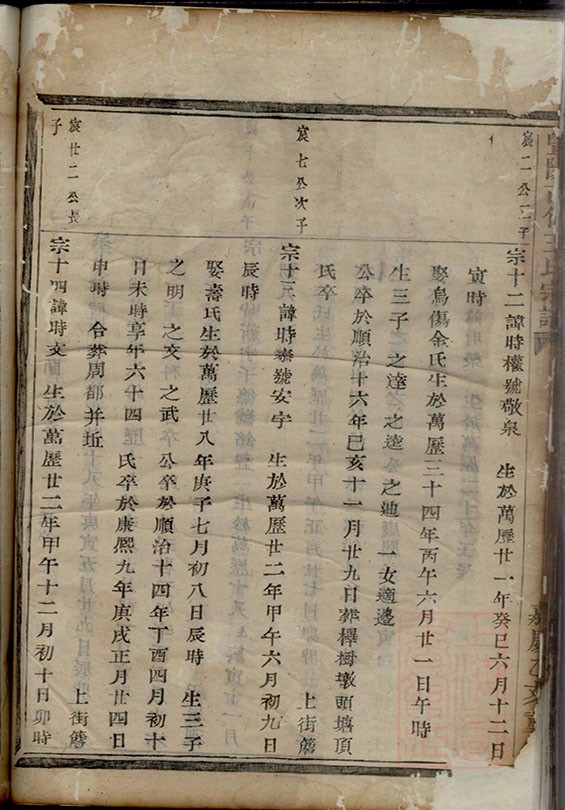 宸二公二子
宗十二諱時權號敬泉 生於萬歷廿一年癸巳六月十二日
寅時
娶烏傷余氏生於萬歷三十四年丙午六月廿一日午時
生三子 之達 之逵 之迪 一女適邊
公卒於順治十六年己亥十一月廿九日葬檡樹墩頭塘頂
氏卒 上街簷
宸七公次子
宗十三諱時泰號安宇 生於萬歷廿二年甲午六月初九日
辰時
娶壽氏生於萬歷廿八年庚子七月初八日辰時 生三子
之明 之文 之武 公卒於順治十四年丁酉四月初十
日未時享年六十四 氏卒於康熙九年庚戌正月廿四日
申時 合葬周都井近 上街簷
宸廿二公長子
宗十四諱時文 生於萬歷廿二年甲午十二月初十日卯時
王氏宗譜
嘉慶乙